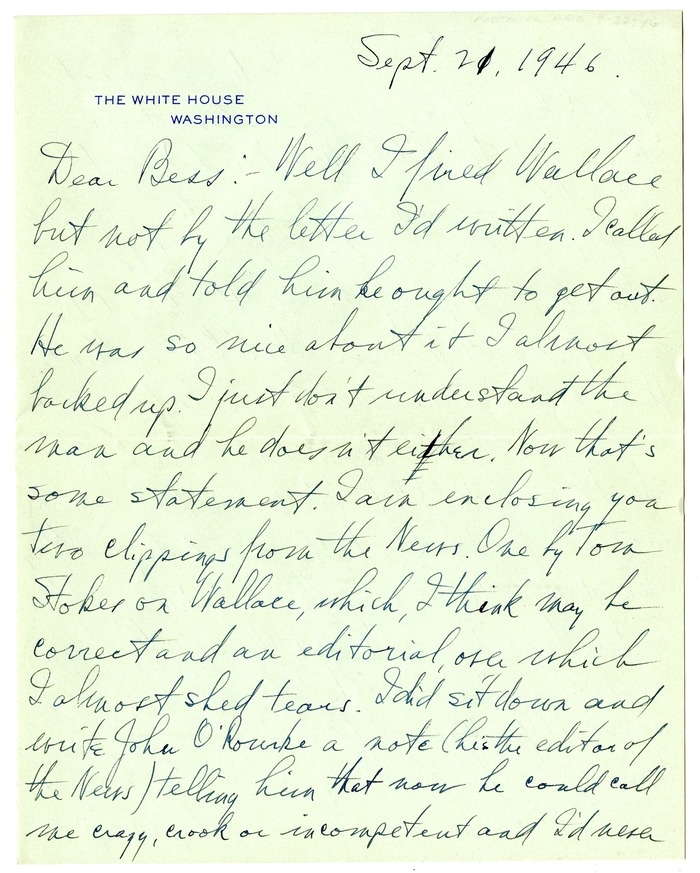 Sept. 21, 1946.
THE WHITE HOUSE
WASHINGTON
Dear Bess:- Well I fired Wallace
but not by the letter I'd written. I called
him and told him he ought to get out.
He was so nice about it I almost
backed up. I just don't understand the
man and he doesn't either. Now that's
some statement. I am enclosing you
two clippings from the News. One by Tom
Stokes on Wallace, which, I think may be
correct and an editorial, over which
I almost shed tears. I did sit down and
write John O'Rourke a note (he's the editor of
the News) telling him that now he could call
me crazy, crook or incompetent and I'd never